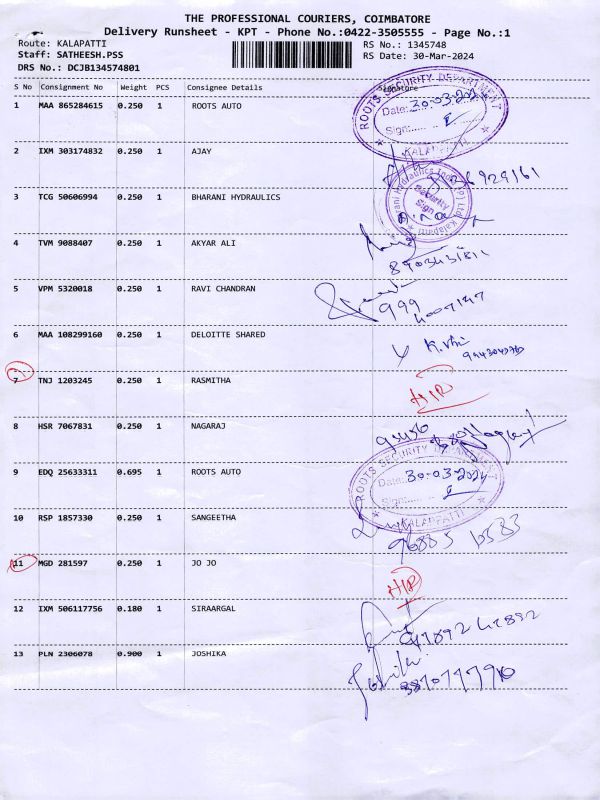 THE PROFESSIONAL COURIERS, COIMBATORE
Delivery Runsheet - KPT - Phone No.:0422-3505555 - Page No.:1
Route: KALAPATTI RS No.: 1345748
Staff: SATHEESH.PSS RS Date: 30-Mar-2024
DRS No.: DCJB134574801
S No Consignment No Weight PCS Consignee Details Signature
1 MAA 865284615 0.250 1 ROOTS AUTO
ROOTS SECURITY DEPARTMENT
Date: 30.03.2024
Sign:
KALAPATTI
2 IXM 303174832 0.250 1 AJAY
3 TCG 50606994 0.250 1 BHARANI HYDRAULICS
Security
Sign
4 TVM 9088407 0.250 1 AKYAR ALI
5 VPM 5320018 0.250 1 RAVI CHANDRAN
999
6 MAA 108299160 0.250 1 DELOITTE SHARED
7 TNJ 1203245 0.250 1 RASMITHA
8 HSR 7067831 0.250 1 NAGARAJ
9 EDQ 25633311 0.695 1 ROOTS AUTO
ROOTS SECURITY DEPARTMENT
Date: 30.03.2024
Sign:
KALAPATTI
10 RSP 1857330 0.250 1 SANGEETHA
11 MGD 281597 0.250 1 JO JO
12 IXM 506117756 0.180 1 SIRAARGAL
13 PLN 2306078 0.900 1 JOSHIKA